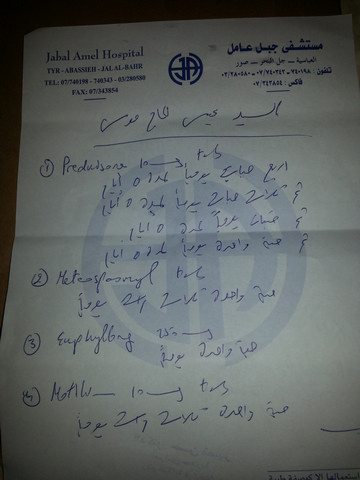 Jabal Amel Hospital
مستشفى جبل عامل
TYR - ABASSIEH - JAL AL-BAHR
العباسية - جل البحر - صور
TEL: 07/740198 - 740343 - 03/280580
تلفون: ٧٤٠١٩٨ - ٠٧/٧٤٠٣٤٣ - ٠٣/٢٨٠٥٨٠
FAX: 07/343854
فاكس: ٠٧/٣٤٣٨٥٤
السيد عيسى الحاج موسى
① Prednisone 10 mg tab
اربع حبات يومياً لمدة ٥ أيام
ثم ثلاث حبات يومياً لمدة ٥ أيام
ثم حبتان يومياً لمدة ٥ أيام
ثم حبة واحدة يومياً لمدة ٥ أيام
② Meteospasmyl tab
حبة واحدة ثلاث مرات يومياً
③
حبة واحدة يومياً
④ 10 mg tab
حبة واحدة ثلاث مرات يومياً